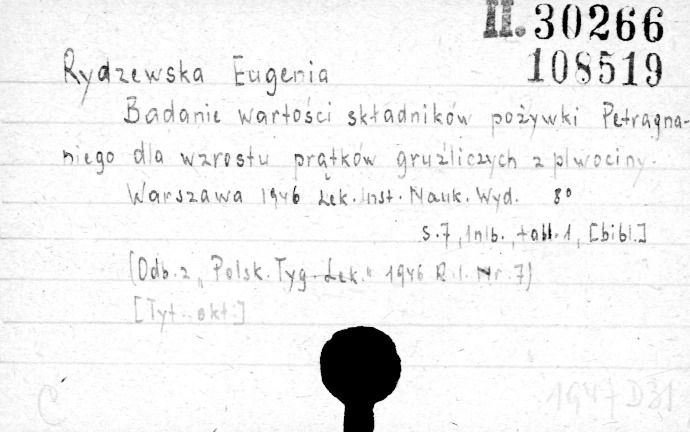 II. 30266
108519
Rydzewska Eugenia
Badanie wartości składników pożywki Petragna-
niego dla wzrostu prątków gruźliczych z plwociny.
Warszawa 1946 Lek. Inst. Nauk. Wyd. 8°
s. 7, 1 nlb., tabl. 1, [bibl.]
(Odb. z „Polsk. Tyg. Lek." 1946 R. 1. Nr. 7)
[Tyt. okł.]
C
1947 D